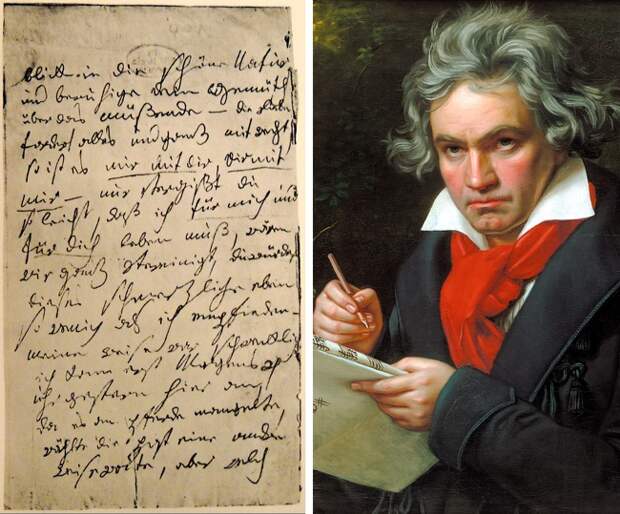 blick in die schöne Natur
und beruhige dein Gemüth
über das müßende – die Liebe
fordert alles und ganz mit recht
so ist es mir mit dir dir mit
mir – nur vergißt du
so leicht, daß ich für mich und
für dich leben muß, wären
wir ganz vereinigt, du würdest
dieses schmerzliche eben
so wenig als ich empfinden –
meine reise war schrecklich
ich kam erst Morgens 4
uhr gestern hier an,
da es an pferde mangelte,
wählte die post eine andre
reiseroute, aber welch